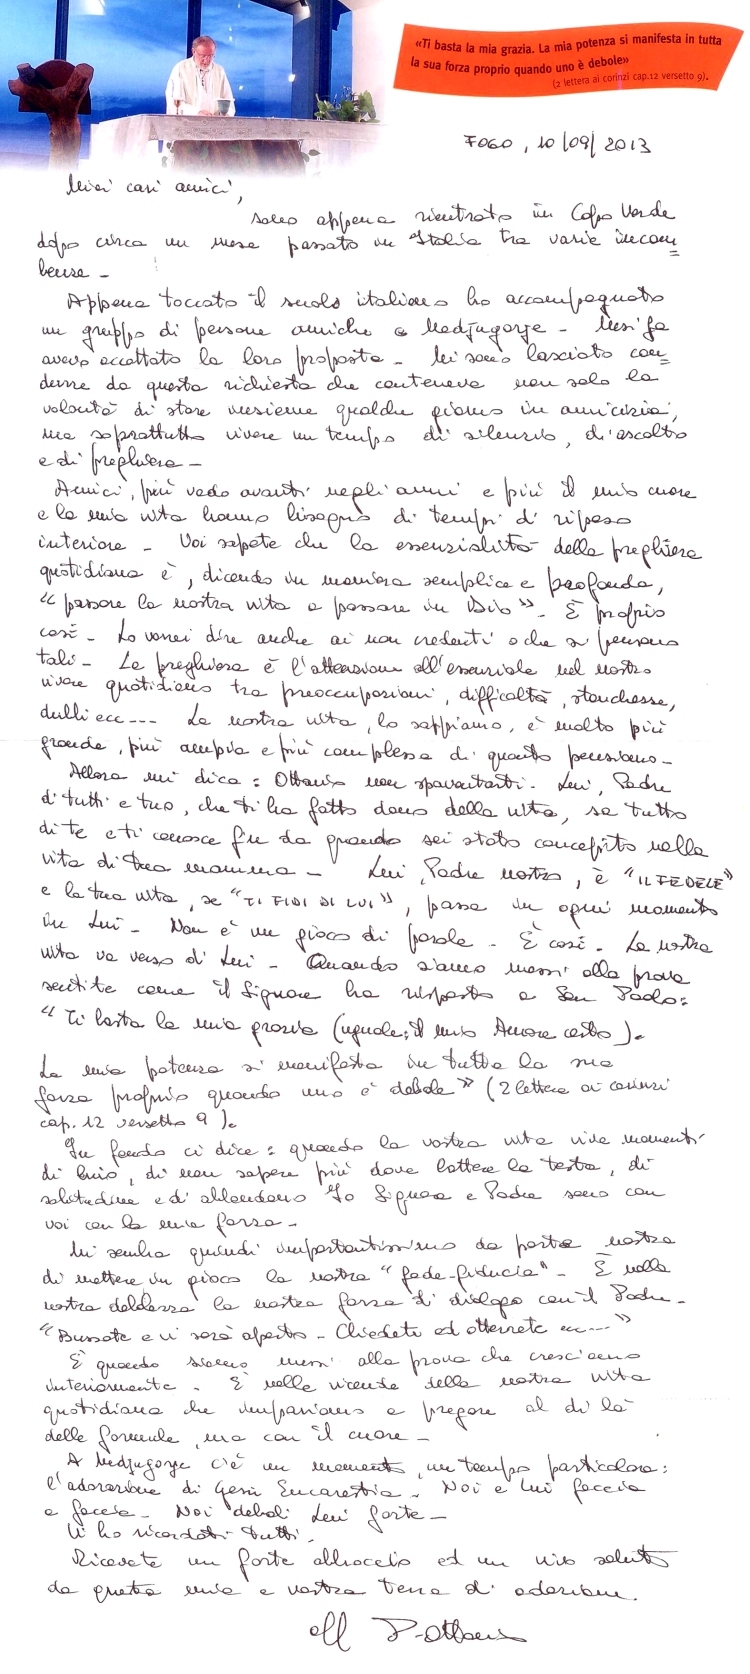 «Ti basta la mia grazia. La mia potenza si manifesta in tutta
la sua forza proprio quando uno è debole»
(2 lettera ai corinzi cap.12 versetto 9).
FOGO, 10/09/2013
Miei cari amici,
sono appena rientrato in Capo Verde
dopo circa un mese passato in Italia tra varie incom=
benze -
Appena toccato il suolo italiano ho accompagnato
un gruppo di persone amiche a Medjugorje -
avevo accettato la loro proposta - Mi sono lasciato con=
durre da questa richiesta che conteneva non solo la
volontà di stare insieme qualche giorno in amicizia,
ma soprattutto vivere un tempo di silenzio, d'ascolto
e di preghiera -
Amici, più vado avanti negli anni e più il mio cuore
e la mia vita hanno bisogno di tempi di riposo
interiore - Voi sapete che la essenzialità della preghiera
quotidiana è, dicendo in maniera semplice e profonda,
"passare la nostra vita a passare in Dio" - È proprio
così - Lo vorrei dire anche ai non credenti o che si pensano
tali - La preghiera è l'attenzione all'essenziale nel nostro
vivere quotidiano tra preoccupazioni, difficoltà, stanchezze,
dubbi ecc --- La nostra vita, lo sappiamo, è molto più
grande, più ampia e più complessa di quanto pensiamo -
Allora mi dico: Ottavio non spaventarti. Lui, Padre
di tutti e tuo, che ti ha fatto dono della vita, sa tutto
di te e ti conosce fin da quando sei stato concepito nella
vita di tua mamma - Lui, Padre nostro, è "IL FEDELE"
e la tua vita, se "TI FIDI DI LUI", passa in ogni momento
in Lui - Non è un gioco di parole - È così - La nostra
vita va verso di Lui - Quando siamo messi alla prova
sentite come il Signore ha risposto a San Paolo:
"Ti basta la mia grazia (uguale: il mio Amore certo).
La mia potenza si manifesta in tutta la sua
forza proprio quando uno è debole" (2 lettera ai corinzi
cap. 12 versetto 9).
In fondo ci dice: quando la vostra vita vive momenti
di buio, di non sapere più dove battere la testa, di
solitudine e di abbandono Io Signore e Padre sono con
voi con la mia forza -
Mi sembra quindi importantissimo da parte nostra
di mettere in gioco la nostra "fede-fiducia" - È nella
nostra debolezza la nostra forza di dialogo con il Padre -
"Bussate e vi sarà aperto - Chiedete ed otterrete ---"
È quando siamo messi alla prova che cresciamo
interiormente. È nelle vicende della nostra vita
quotidiana che impariamo a pregare al di là
delle formule, ma con il cuore -
A Medjugorje c'è un momento, un tempo particolare:
l'adorazione di Gesù Eucarestia - Noi e Lui faccia
a faccia - Noi deboli Lui forte -
Vi ho ricordati tutti -
Ricevete un forte abbraccio ed un vivo saluto
da questa mia e vostra terra di adozione.
P. Ottavio